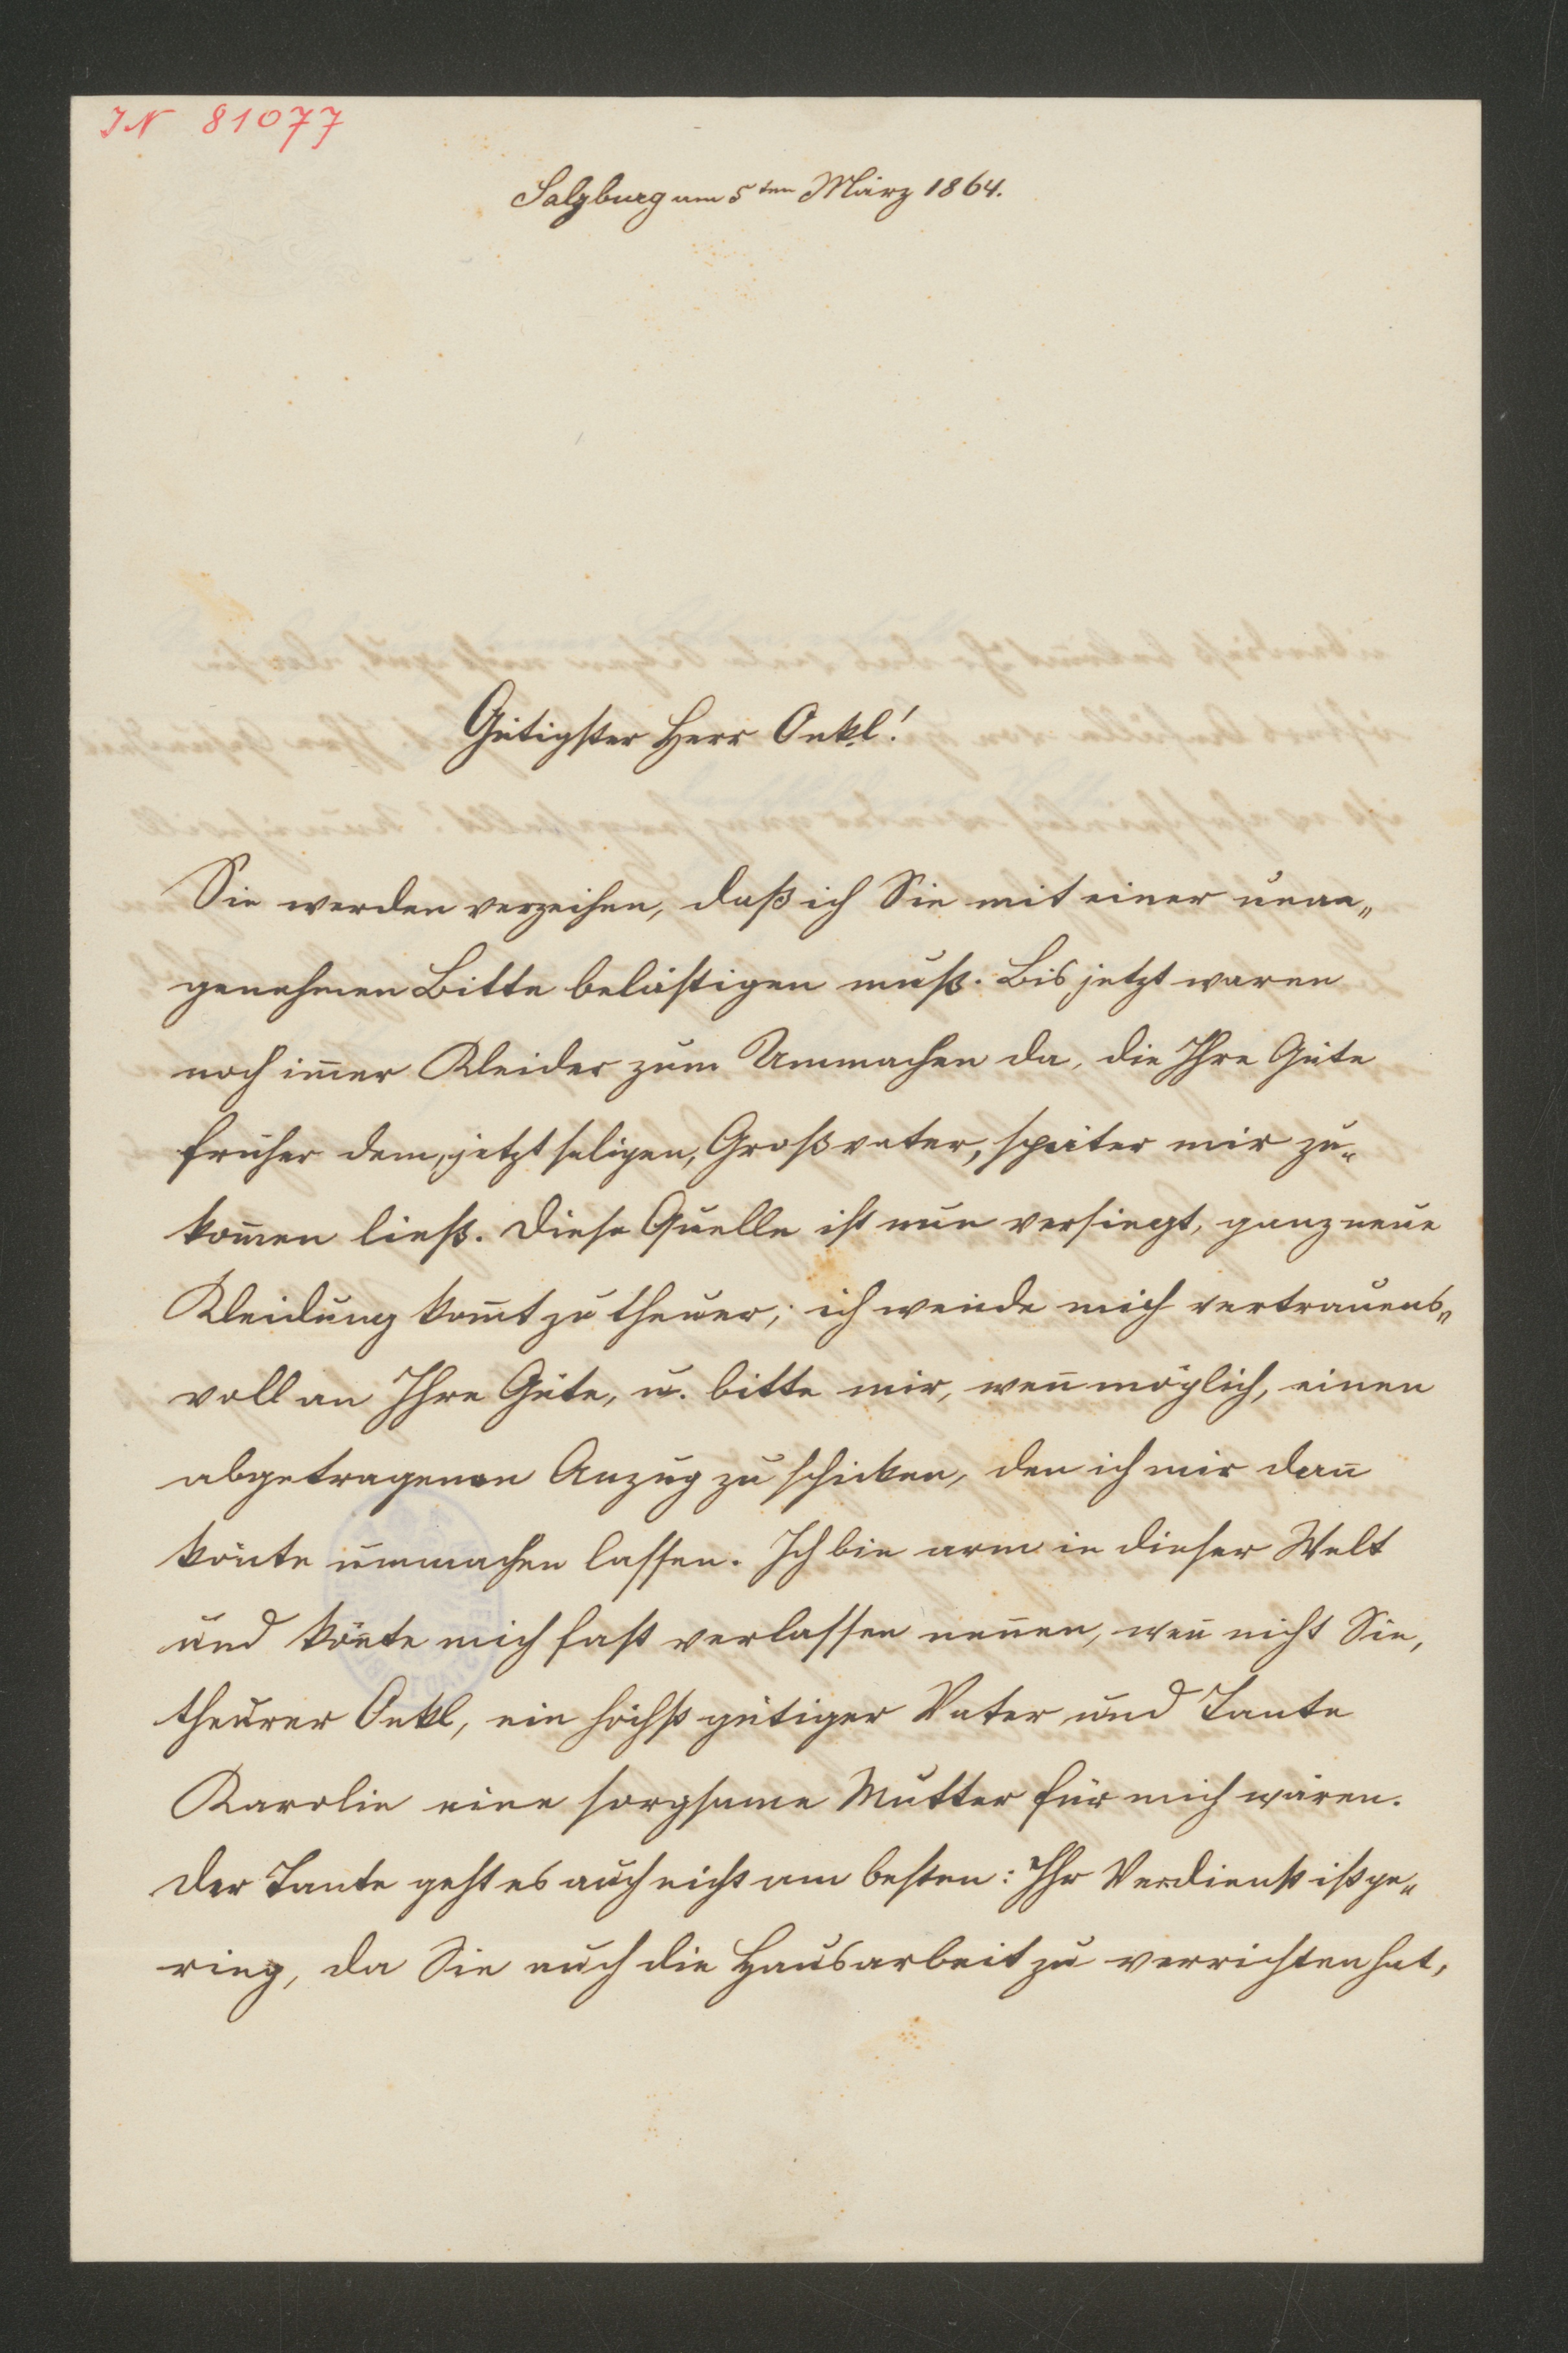 IN 81077
Salzburg am 5ten März 1864.
Gütigster Herr Onkl!
Sie werden verzeihen, daß ich Sie mit einer unan„
genehmen Bitte belästigen muß. Bis jetzt waren
noch im̅er Kleider zum Ummachen da, die Ihre Güte
früher dem, jetzt seligen, Großvater, später mir zu„
kom̅en ließ. Diese Quelle ist nun versiegt, ganz neue
Kleidung kom̅t zu theuer; ich wende mich vertrauens„
voll an Ihre Güte, u. bitte mir, wen̅ möglich, einen
abgetragenen Anzug zu schicken, den ich mir dan̅
kön̅te ummachen lassen. Ich bin arm in dieser Welt
und kön̅te mich fast verlassen nen̅en, wen̅ nicht Sie,
theurer Onkl, ein höchst gütiger Vater und Tante
Karolin eine sorgsame Mutter für mich wären.
Der Tante geht es auch nicht am besten: Ihr Verdienst ist ge„
ring, da Sie auch die Hausarbeit zu verrichten hat,